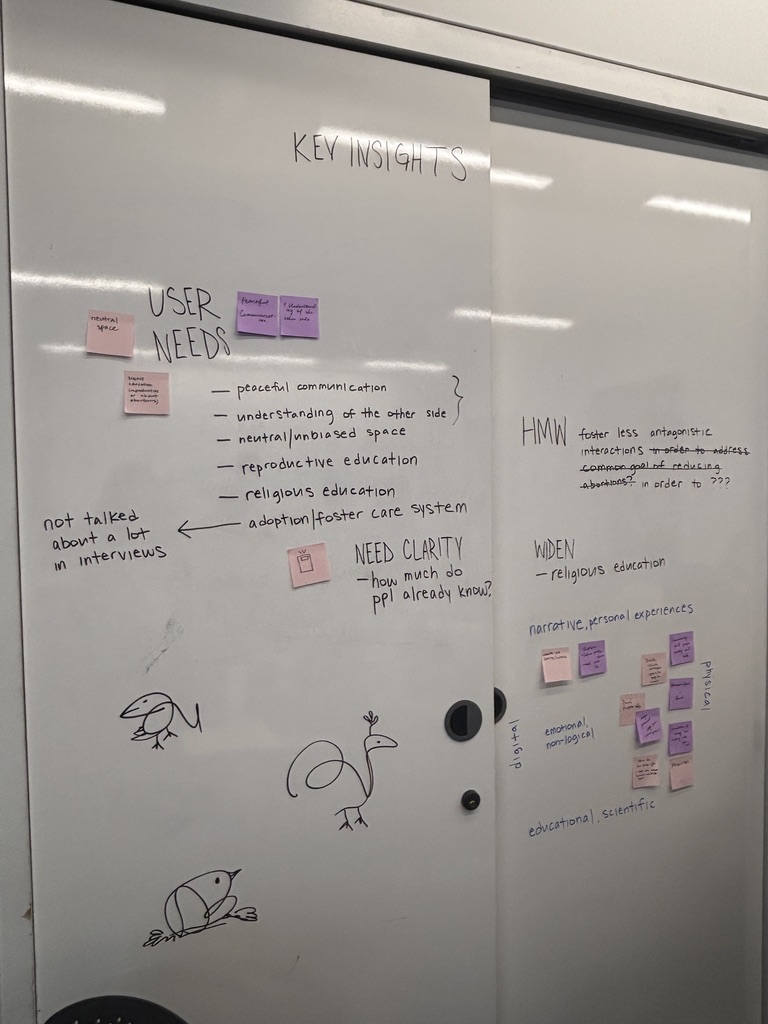 KEY INSIGHTS
USER
NEEDS
neutral
space
Peaceful
— peaceful communication
— understanding of the other side
— neutral/unbiased space
— reproductive education
— religious education
— adoption/foster care system
not talked
about a lot
in interviews
NEED CLARITY
– how much do
ppl already know?
HMW foster less antagonistic
interactions in order to address
common goal of reducing
abortions? in order to ???
WIDEN
– religious education
narrative, personal experiences
physical
digital
emotional,
non-logical
educational, scientific